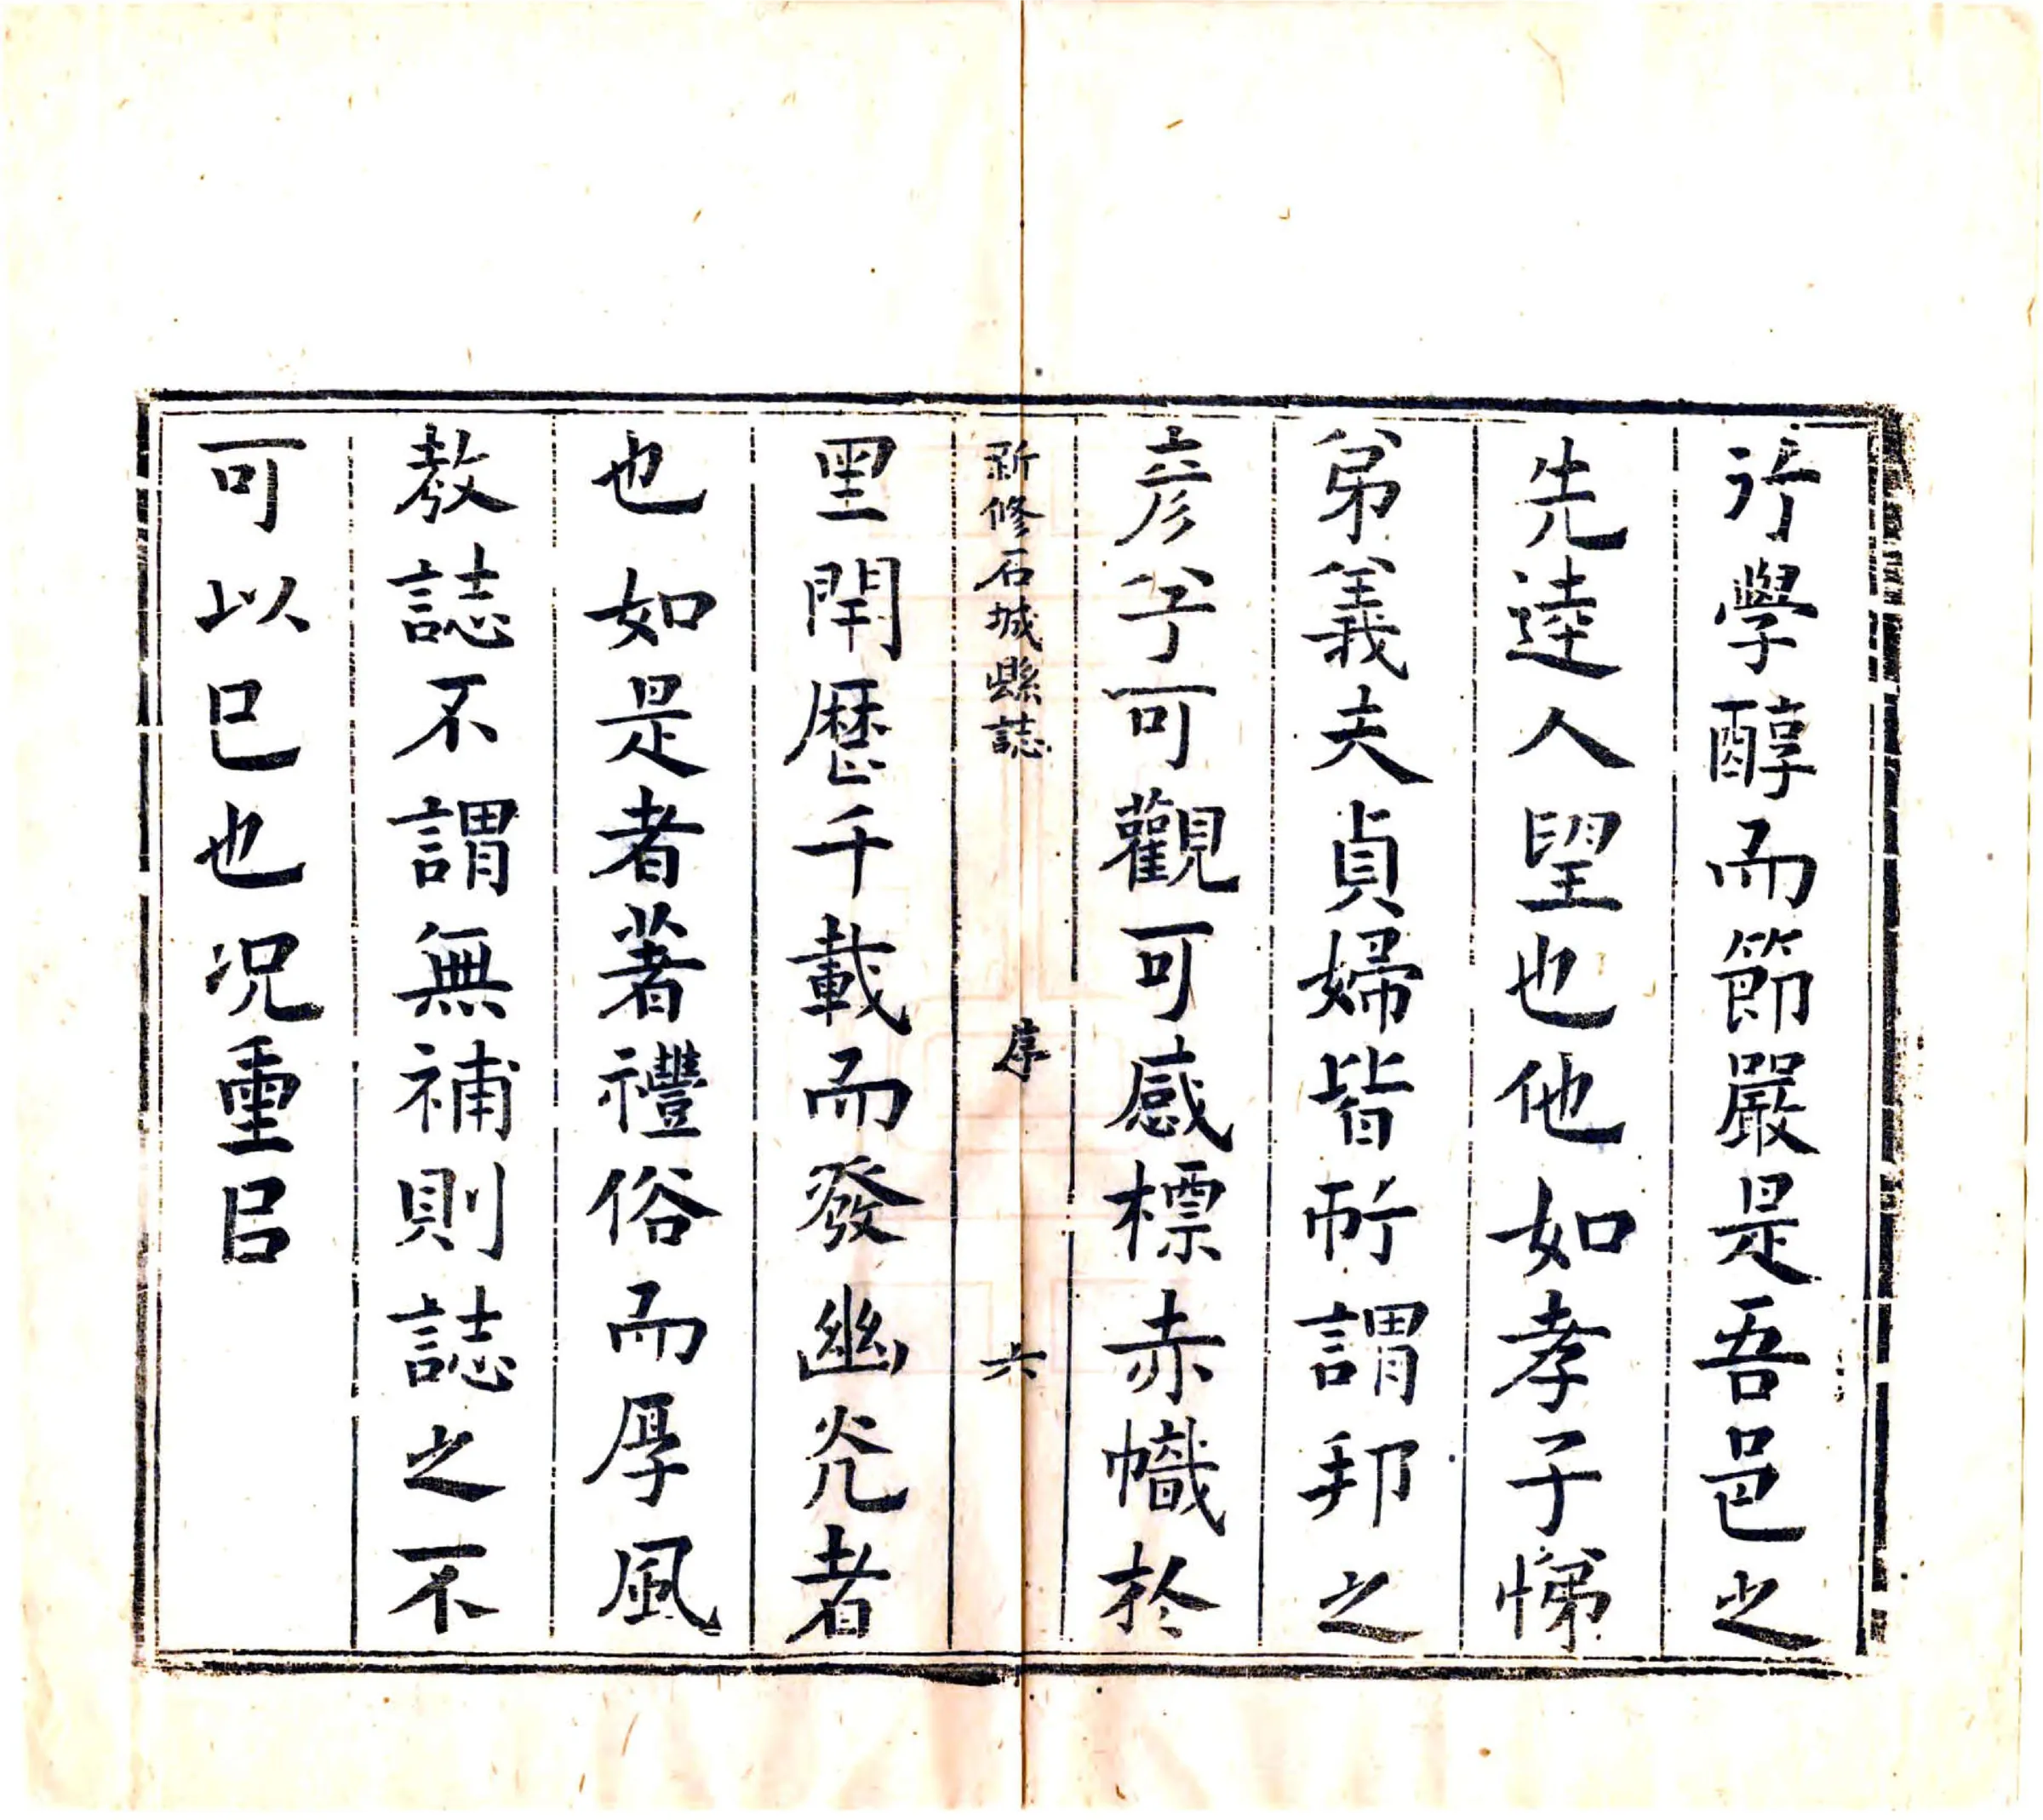 行學醇而節嚴是吾邑之
先逹人望也他如孝子悌
弟義夫貞婦皆所謂邦之
彥兮可觀可感標赤幟於
新修石城縣誌 序 六
里閈歷千載而發幽光者
也如是者著禮俗而厚風
教誌不謂無補則誌之不
可以已也况重呂